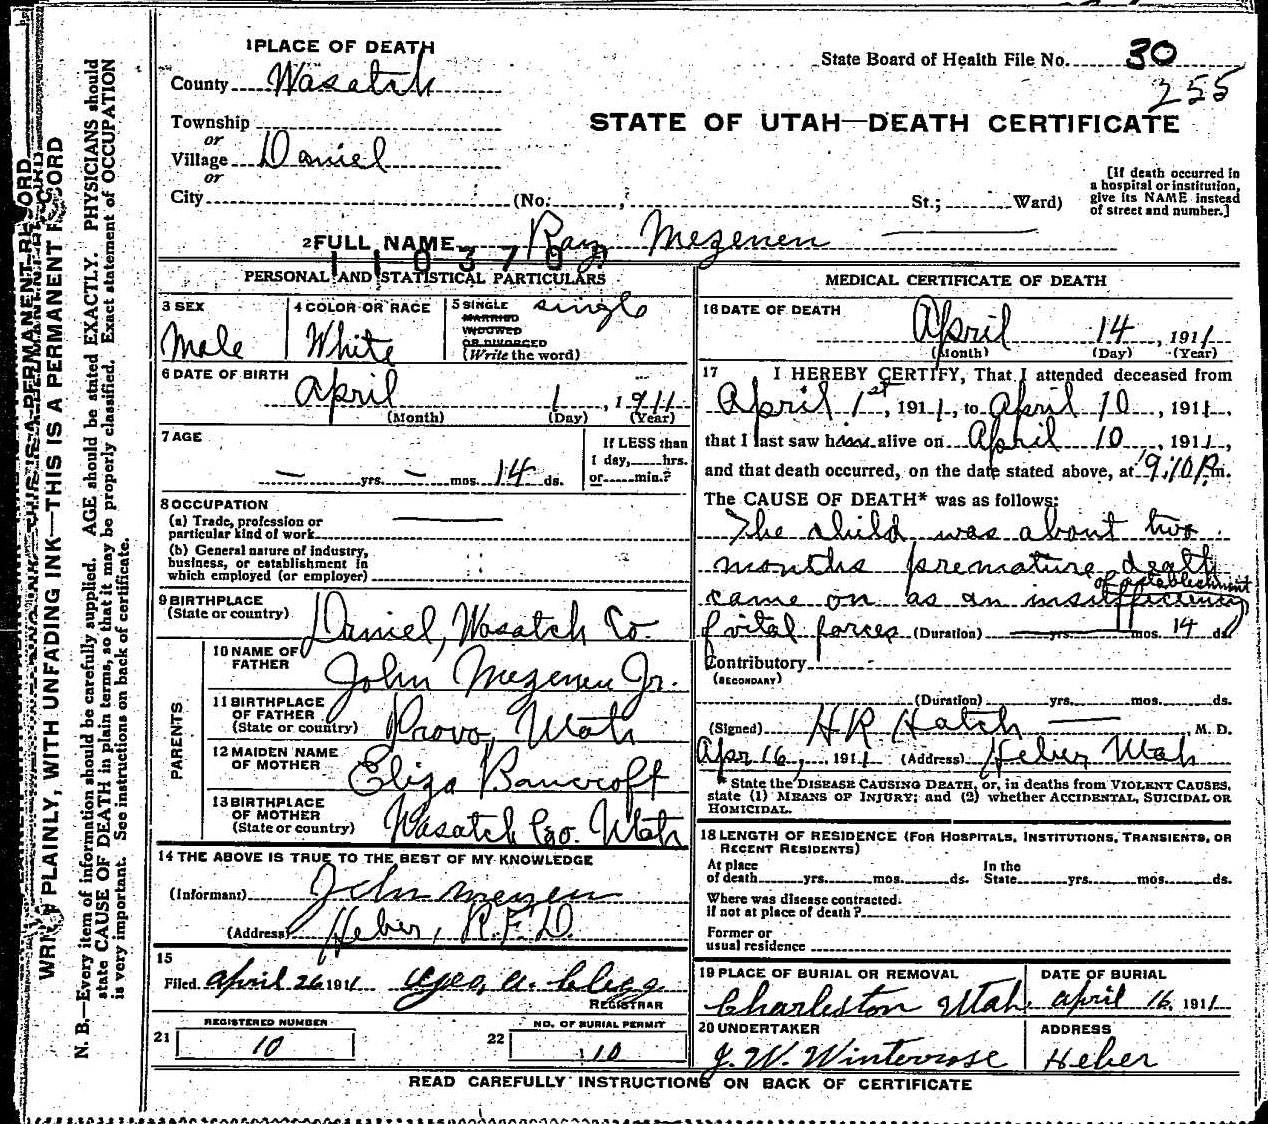 1 PLACE OF DEATH
State Board of Health File No. 30
County Wasatch
255
Township
or
STATE OF UTAH—DEATH CERTIFICATE
Village Daniel
or
City (No. St.; Ward)
[If death occurred in
a hospital or institution,
give its NAME instead
of street and number.]
2 FULL NAME Ray Mezenen
PERSONAL AND STATISTICAL PARTICULARS
3 SEX
Male
4 COLOR OR RACE
White
5 SINGLE
MARRIED
WIDOWED
OR DIVORCED
(Write the word)
single
6 DATE OF BIRTH
April 1, 1911
(Month) (Day) (Year)
7 AGE
— yrs. — mos. 14 ds.
If LESS than
1 day, hrs.
or min.?
8 OCCUPATION
(a) Trade, profession or
particular kind of work
(b) General nature of industry,
business, or establishment in
which employed (or employer)
9 BIRTHPLACE
(State or country)
Daniel, Wasatch Co.
PARENTS
10 NAME OF
FATHER
John Mezenen Jr.
11 BIRTHPLACE
OF FATHER
(State or country)
Provo, Utah
12 MAIDEN NAME
OF MOTHER
Eliza Bancroft
13 BIRTHPLACE
OF MOTHER
(State or country)
Wasatch Co. Utah
14 THE ABOVE IS TRUE TO THE BEST OF MY KNOWLEDGE
(Informant) John Mezenen
(Address) Heber, R.F.D.
15
Filed April 26 1911 Geo. A. Clegg
REGISTRAR
REGISTERED NUMBER
21 10
NO. OF BURIAL PERMIT
22 10
MEDICAL CERTIFICATE OF DEATH
16 DATE OF DEATH
April 14, 1911
(Month) (Day) (Year)
17 I HEREBY CERTIFY, That I attended deceased from
April 1st, 1911, to April 10, 1911,
that I last saw him alive on April 10, 1911,
and that death occurred, on the date stated above, at 9:10 P.m.
The CAUSE OF DEATH* was as follows:
The child was about two
months premature death
of establishment
came on as an insufficiency
of vital forces (Duration) yrs. mos. 14 ds.
Contributory
(SECONDARY)
(Duration) yrs. mos. ds.
(Signed) H R Hatch M. D.
Apr 16, 1911 (Address) Heber Utah
* State the DISEASE CAUSING DEATH, or, in deaths from VIOLENT CAUSES,
state (1) MEANS OF INJURY; and (2) whether ACCIDENTAL, SUICIDAL OR
HOMICIDAL.
18 LENGTH OF RESIDENCE (FOR HOSPITALS, INSTITUTIONS, TRANSIENTS, OR
RECENT RESIDENTS)
At place
of death yrs. mos. ds.
In the
State yrs. mos. ds.
Where was disease contracted,
if not at place of death?
Former or
usual residence
19 PLACE OF BURIAL OR REMOVAL
Charleston Utah.
DATE OF BURIAL
April 16, 1911
20 UNDERTAKER
J. W. Winterrose
ADDRESS
Heber
READ CAREFULLY INSTRUCTIONS ON BACK OF CERTIFICATE
WRITE PLAINLY, WITH UNFADING INK—THIS IS A PERMANENT RECORD
N. B.—Every item of information should be carefully supplied. AGE should be stated EXACTLY. PHYSICIANS should
state CAUSE OF DEATH in plain terms, so that it may be properly classified. Exact statement of OCCUPATION
is very important. See instructions on back of certificate.